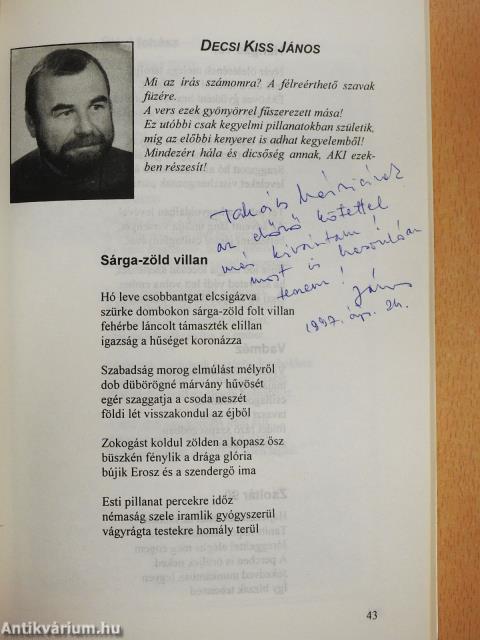 DECSI KISS JÁNOS
Mi az írás számomra? A félreérthető szavak
füzére.
A vers ezek gyönyörrel fűszerezett mása!
Ez utóbbi csak kegyelmi pillanatokban születik,
míg az előbbi kenyeret is adhat kegyelemből!
Mindezért hála és dicsőség annak, AKI ezek-
ben részesít!
Takáts
az előző kötettel
már kívántam!
most is hasonlóan
teszem!
János
1997. ápr. 24.
Sárga-zöld villan
Hó leve csobbantgat elcsigázva
szürke dombokon sárga-zöld folt villan
fehérbe láncolt támaszték elillan
igazság a hűséget koronázza
Szabadság morog elmúlást mélyről
dob dübörögné márvány hűvösét
egér szaggatja a csoda neszét
földi lét visszakondul az éjből
Zokogást koldul zölden a kopasz ősz
büszkén fénylik a drága glória
bújik Erosz és a szendergő ima
Esti pillanat percekre időz
némaság szele iramlik gyógyszerül
vágyrágta testekre homály terül
43
Antikvárium.hu